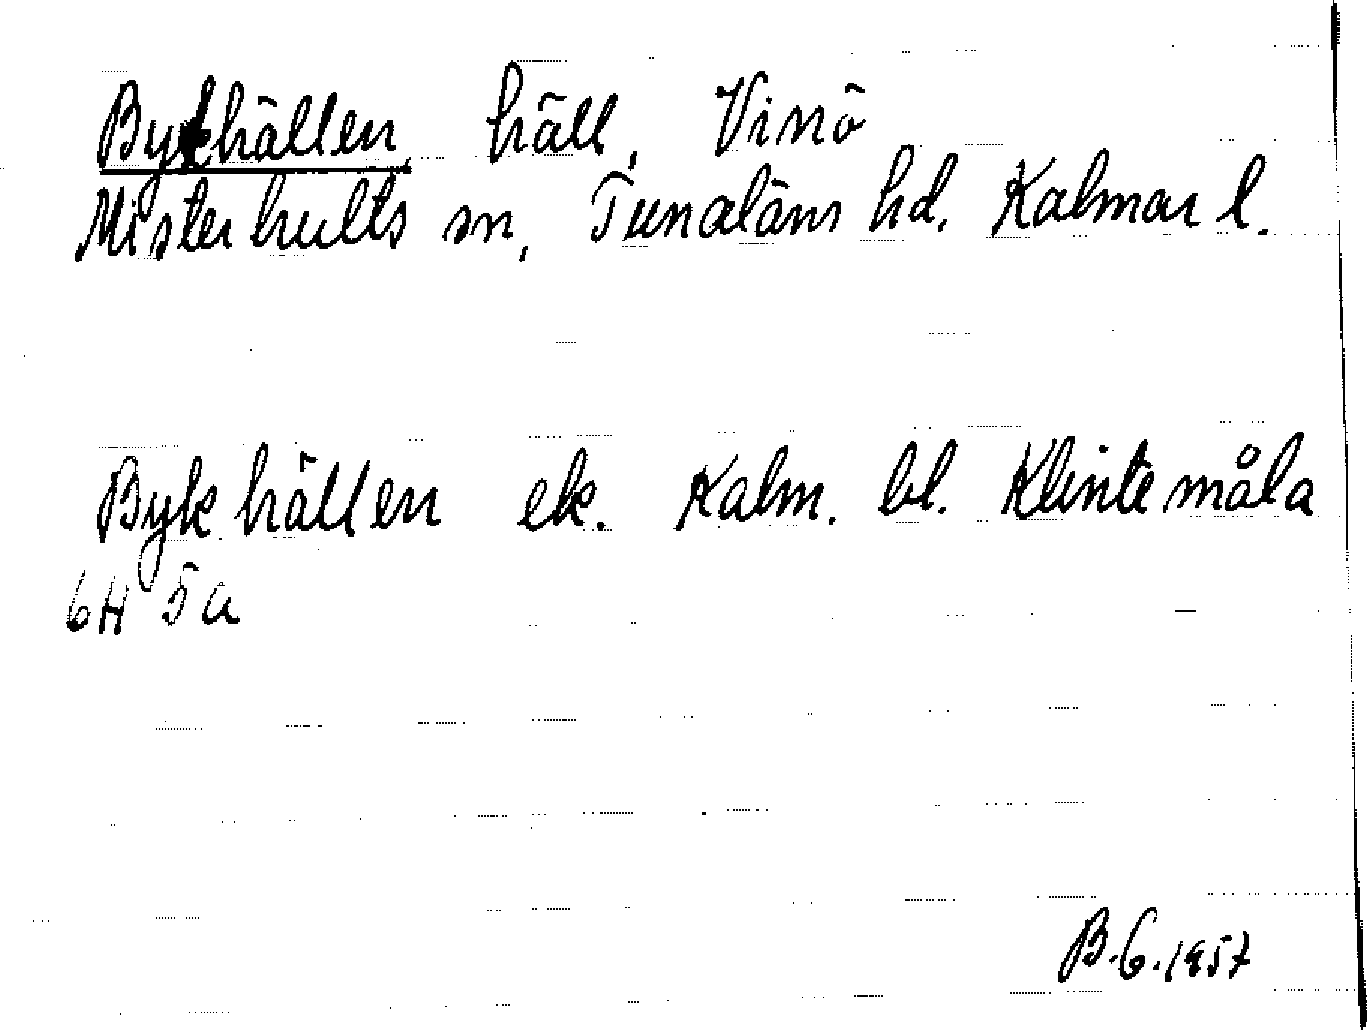 Bykhällen, häll, Vinö
Misterhults sn, Tunaläns hd. Kalmar l.
Bykhällen ek. Kalm. bl. Klintemåla
6H 5a
B.G. 1957